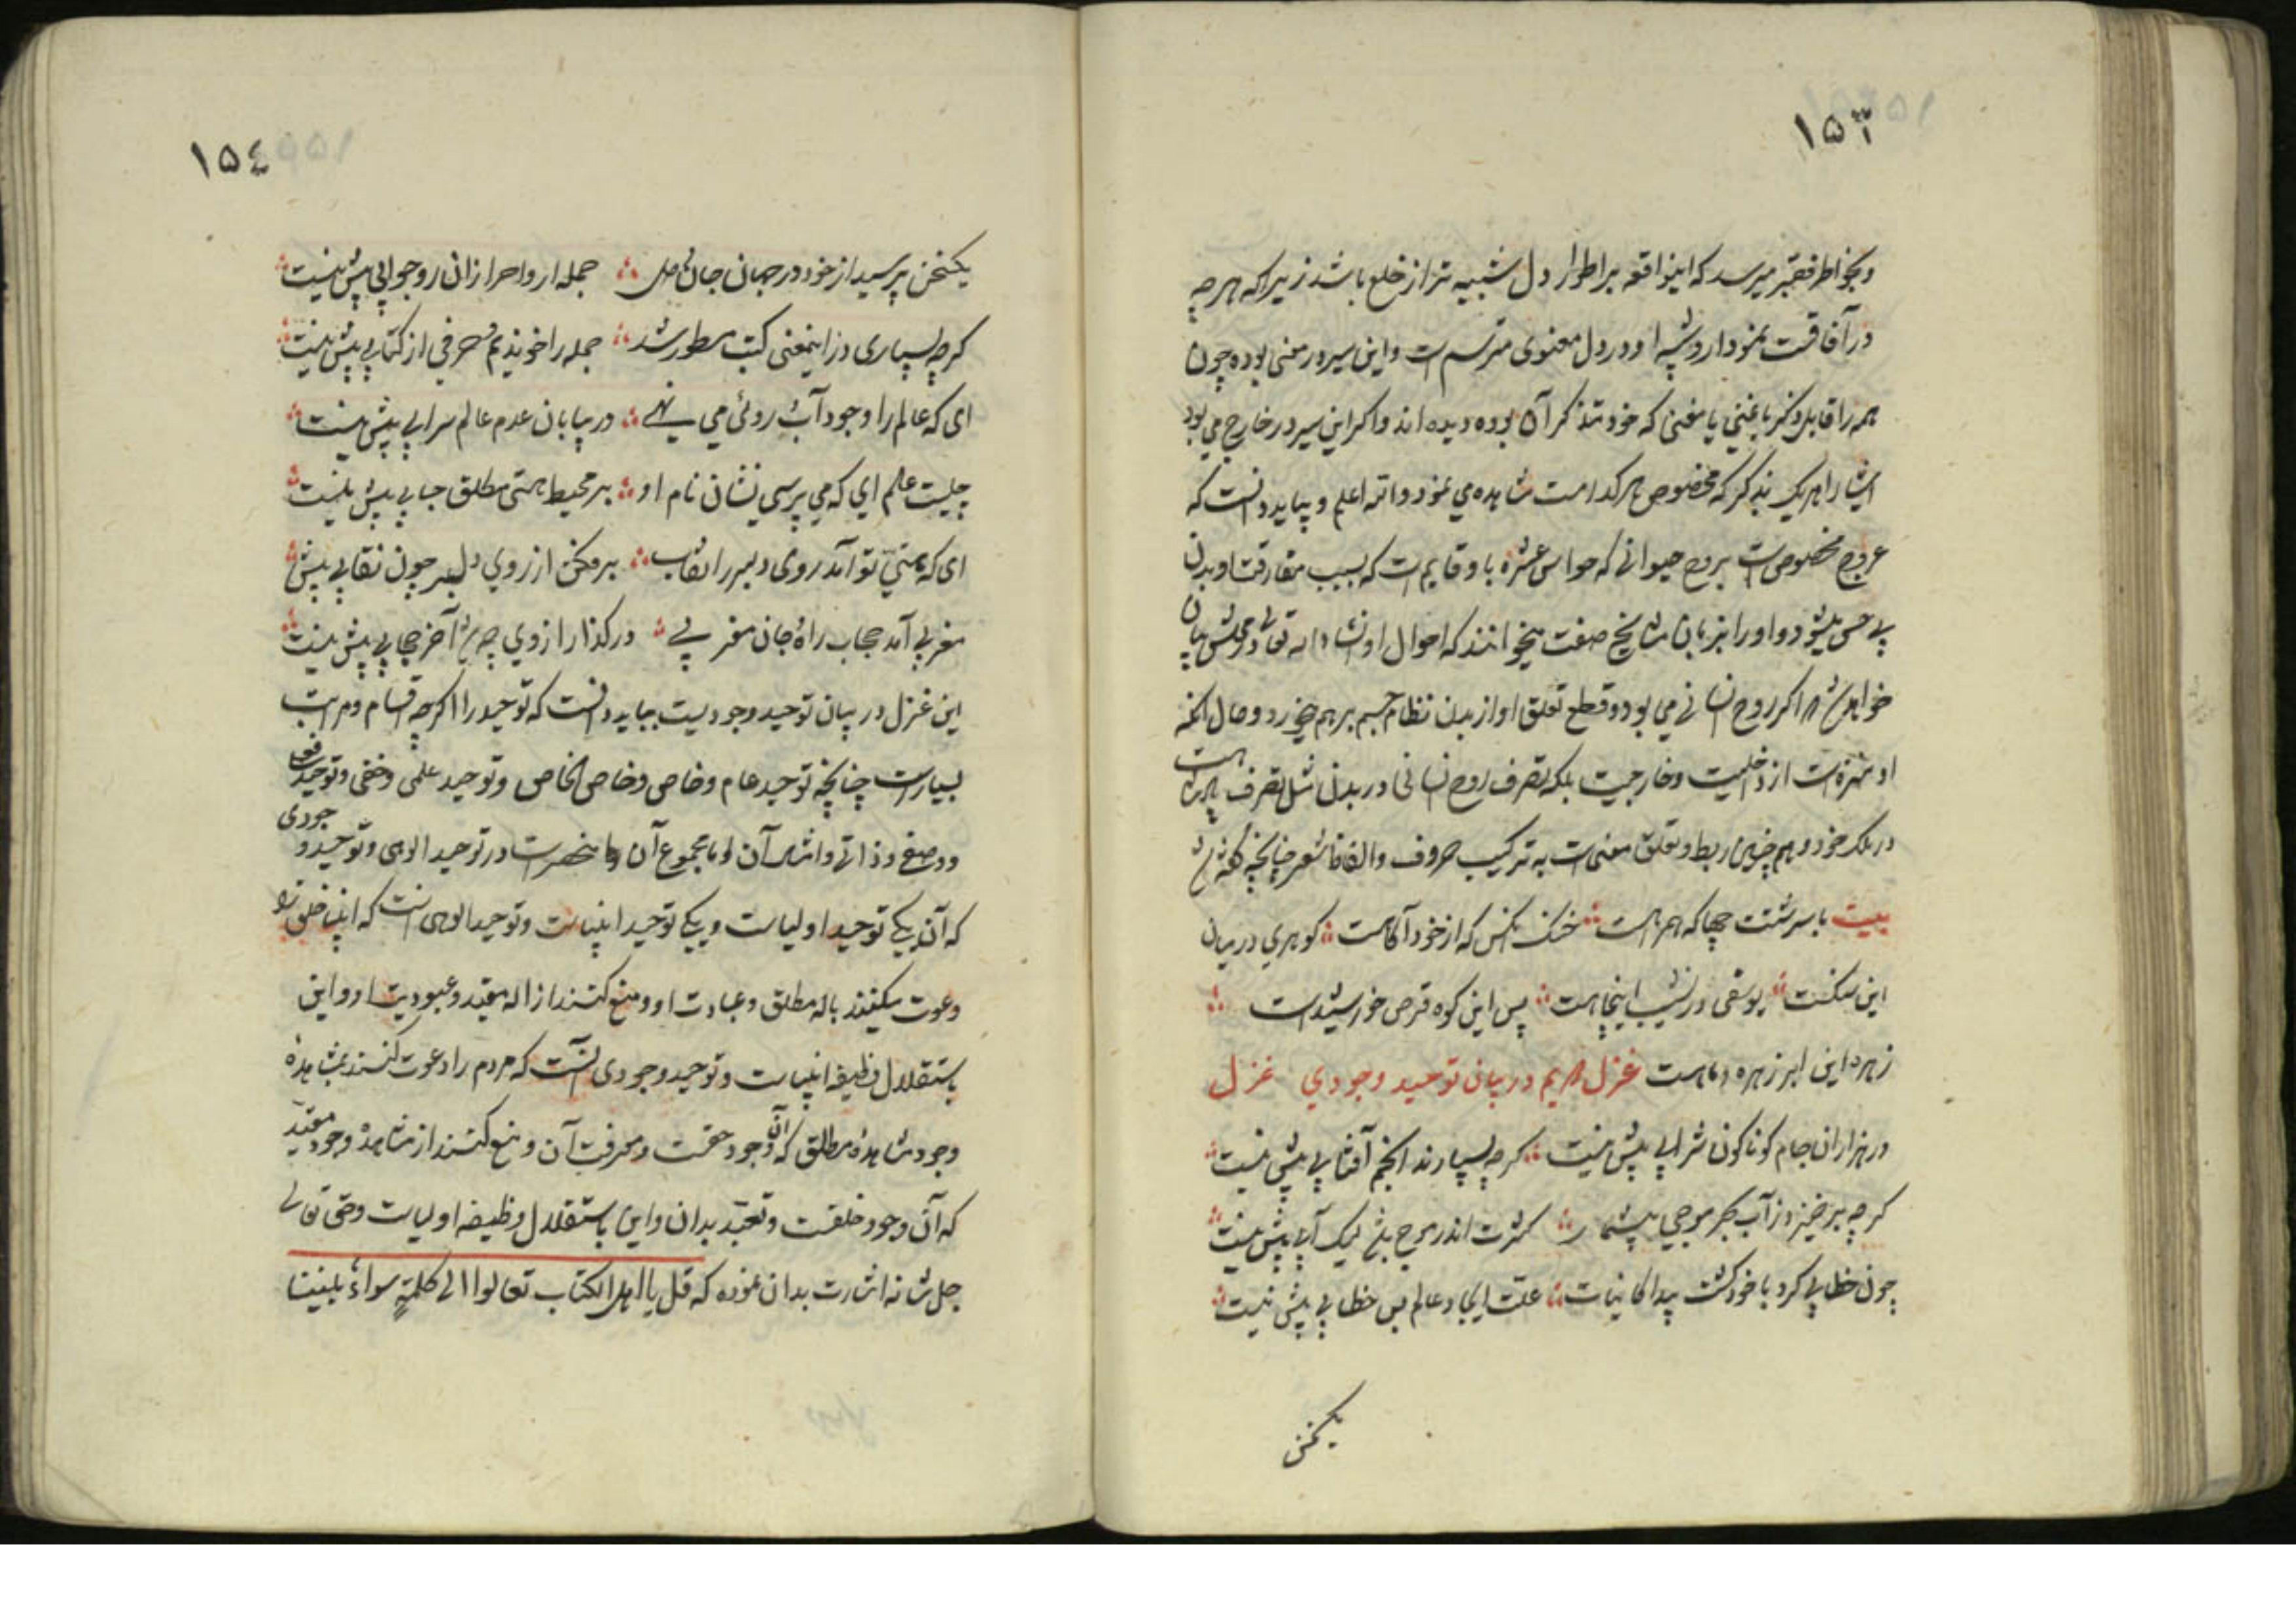 ۱۵۳
وبخواطر فقیر میرسد که اینواقعه بر اطوار دل شبیه تر از خلع باشد زیرا که هر چه
در آفاقست نمودار و شبه او در دل معنوی مرتسم است واین سیر در معنی بوده چون
همه را قابل ذکر یا معنی که خود متذکر آن بوده دیده اند واکر این سیر در خارج می بود
اشیا را هر یک بذکر که مخصوص هر کدامست مشاهده می نمود والله اعلم و بباید دانست که
عروج مخصوص است بروح حیوانی که حواس عشره باو قایم است که بسبب مفارقت او بدن
بی حس میشود و او را بزبان مشایخ صفت میخوانند که احوال او انشاء الله تعالی در محلش بیان
خواهد شد اکر روح انسانی می بود و قطع تعلق او از بدن نظام جسم بر هم میخورد و حال انکه
او منزه است از داخلیت وخارجیت بلکه تصرف روح انسانی در بدن مثل تصرف پادشاه است
در ملک خود و هم چنین ربط و تعلق معنی است به ترکیب حروف والفاظ شعر چنانچه گفته اند
بیت با سرشتت چها که همراهست خنک انکس که از خود آکاهست کوهری در میان
این سنکست یوسفی در نشیب اینچاهست پس این کوه قرص خورشیدست
زهره این ابر زهره و ماهست غزل در بیان توحید وجودی غزل
در هزاران جام کوناکون شرابی بیش نیست کرچه بسیارند انجم آفتابی بیش نیست
کرچه برخیزد ز آب بحر موجی بیشمار کثرت اندر موج باشد لیک آبی بیش نیست
چون خطابی کرد با خود کشت پیدا کاینات علت ایجاد عالم پس خطابی بیش نیست
یکسخن
۱۵٤
یکسخن پرسید از خود در جهان جان دل جمله ارواحرا زان رو جوابی بیش نیست
کرچه بسیاری در اینمعنی کتب مسطور شد جمله را خواندیم حرفی از کتابی بیش نیست
ای که عالم را وجود آب روئی می نهی در بیابان عدم عالم سرابی بیش نیست
چیست عالم ای که می پرسی نشان نام او بر محیط هستی مطلق حبابی بیش نیست
ای که هستی تو آمد روی دلبر را نقاب برفکن از روی دلبر چون نقابی بیش
مغربی آمد حجاب راه جان مغربی در کذار از وی چه شد آخر حجابی بیش نیست
این غزل در بیان توحید وجودیست بباید دانست که توحید را اکرچه اقسام ومراتب
بسیارست چنانچه توحید عام وخاص وخاص الخاص وتوحید علمی وخفی وتوحید فعلی
ووصفی وذاتی وامثال آن اما مجموع آن منحصرست در توحید الوهی وتوحید وجودی
که آن یکی توحید اولیاست و یکی توحید انبیاست وتوحید الوهی آنست که انبیا خلق را
دعوت میکنند باله مطلق وعبادت او ومنع کنند از اله مقید وعبودیت او واین
باستقلال وظیفه انبیاست وتوحید وجودی آنست که مردم را دعوت کنند بمشاهده
وجود مشاهده مطلق که آن وجود حقست ومعرفت آن ومنع کنند از مشاهده وجود مقید
که آن وجود خلقست وتعبّد بدان واین باستقلال وظیفه اولیاست وحق تعالی
جل شانه اشارت بدان نموده که قل یا اهل الکتاب تعالوا الی کلمةٍ سواءٍ بیننا